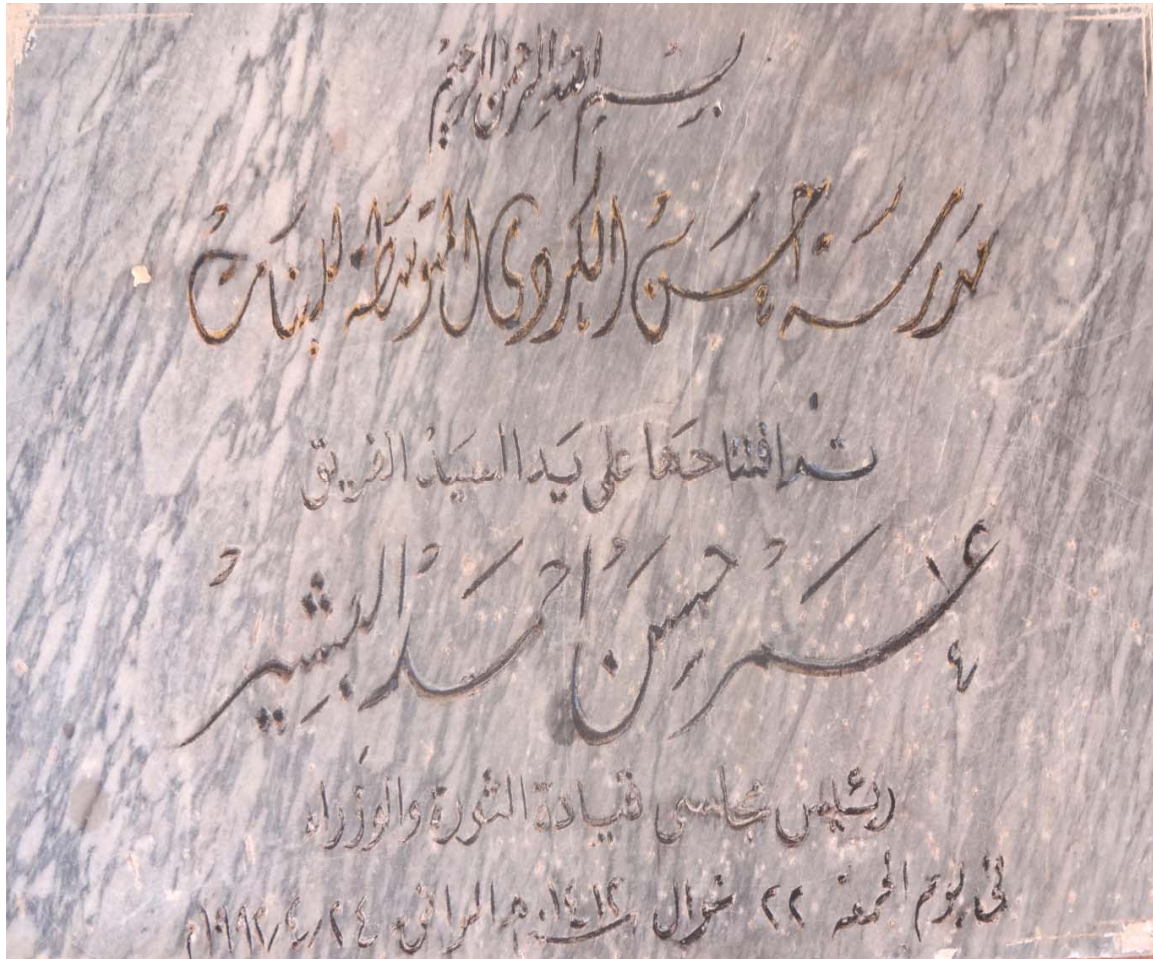 بسم الله الرحمن الرحيم
مدرسة حسن الكردي المتوسطة للبنات
تم إفتتاحها على يد السيد الفريق
عمر حسن احمد البشير
رئيس مجلسى قيادة الثورة والوزراء
فى يوم الجمعة ٢٢ شوال سنة ١٤١٢ هـ الموافق ٢٤/٤/١٩٩٢م